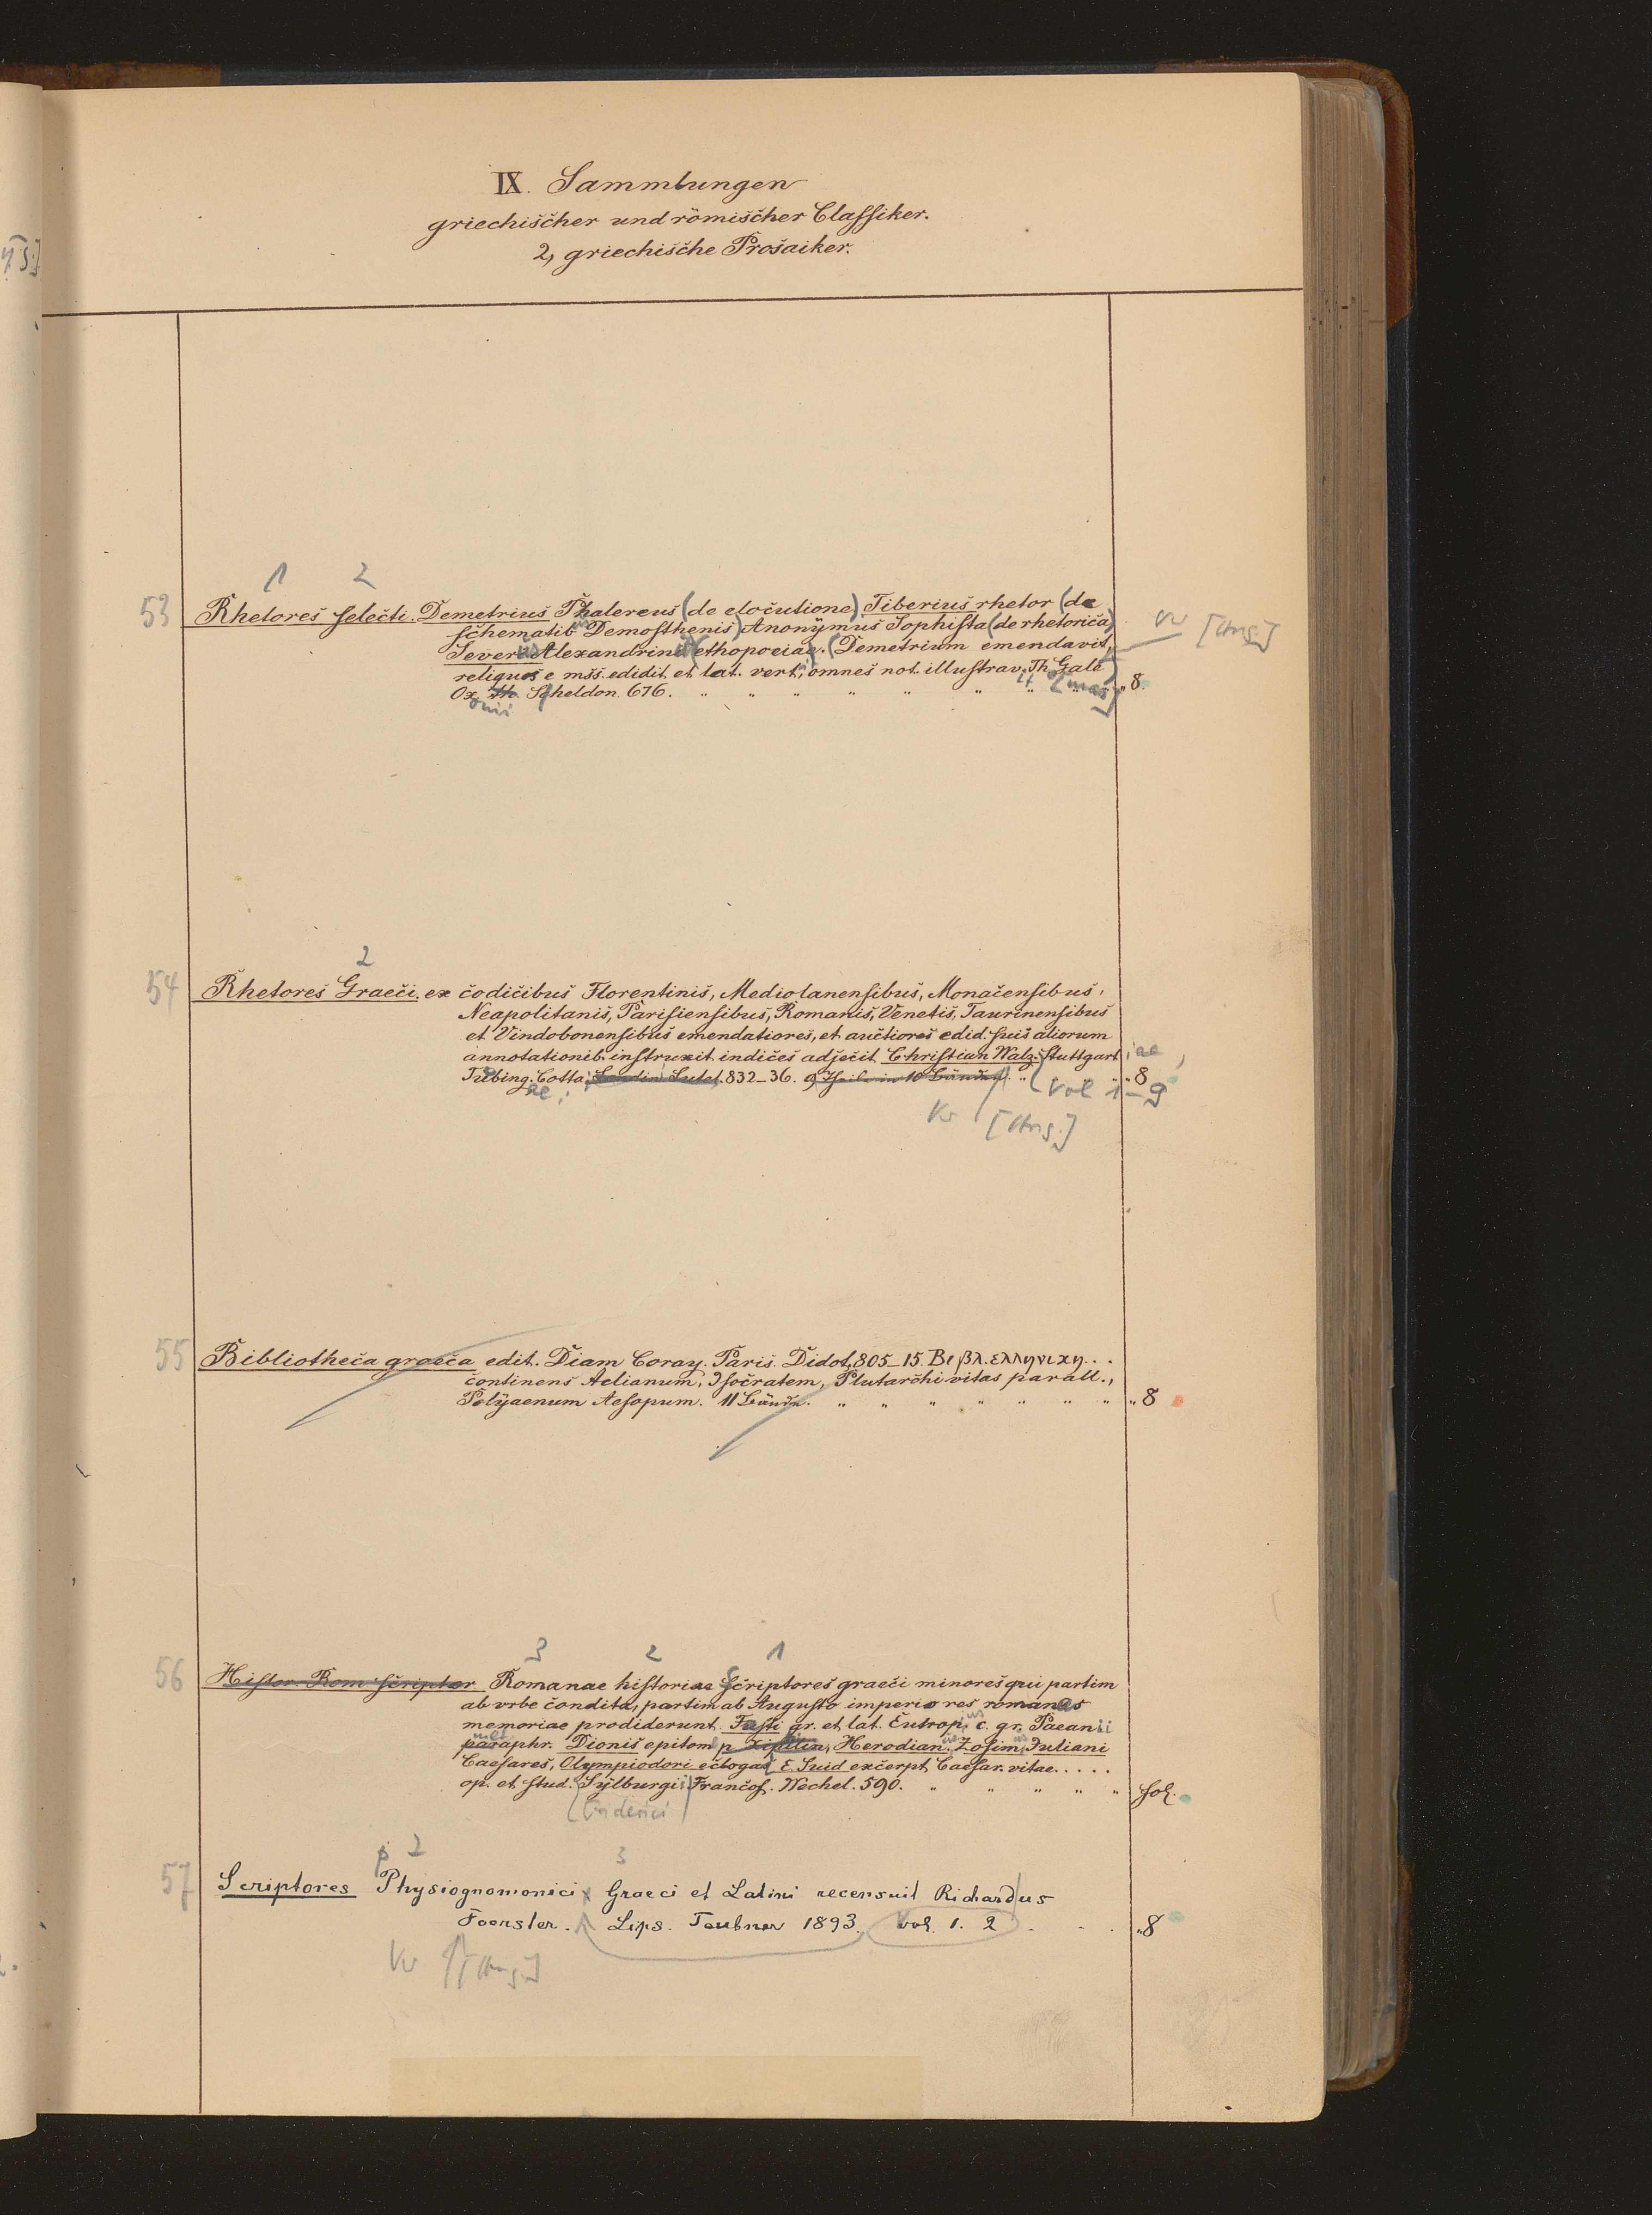 IX. Sammlungen
griechischer und römischer Classiker.
2, griechische Prosaiker.
1 2
53 Rhetores selecti. Demetrius Phalereus (de elocutione) Tiberius rhetor (de
schematib Demosthenis) Anonymus Sophista (de rhetorica)
Severi Alexandrini ethopoeiae. (Demetrium emendavit,
reliquos e mss. edidit et lat. vert, omnes not. illustrav. Th. Gale
Ox. Sheldon. 676. " " " " " " " " 8.
2
54 Rhetores Graeci. ex codicibus Florentinis, Mediolanensibus, Monacensibus,
Neapolitanis, Parisiensibus, Romanis, Venetis, Taurinensibus
et Vindobonensibus emendatiores, et auctiores edid. suis aliorum
annotationib. instruxit indices adjecit Christian Walz. Stuttgart iae,
Tubing. Cotta, Londin Lutet. 832-36. 9 Theile in 10 Bänden. " " 8
Vol 1-9
55 Bibliotheca graeca edit. Diam Coray. Paris. Didot, 805-15. Βιβλ. ελληνικη...
continens Aelianum, Isocratem, Plutarchi vitas parall.,
Polyaenum Aesopum. 11 Bände. " " " " " " " 8
3 2 1
56 Histor. Rom scriptor Romanae historiae scriptores graeci minores qui partim
ab vrbe condita, partim ab Augusto imperio res romanas
memoriae prodiderunt. Fasti gr. et lat. Eutropius c. gr. Paeanii
paraphr. Dionis epitom p Xiphilin, Herodian. Zosim, Juliani
Caesares, Olympiodori eclogas, E Suid excerpt, Caesar. vitae.....
op. et stud. Sylburgii Francof. Wechel. 590. " " " " " fol.
(Friderici)
p 2 3
57 Scriptores Physiognomonici Graeci et Latini recensuit Richardus
Foerster. Lips. Teubner 1893. Vol. 1. 2 . . . "8